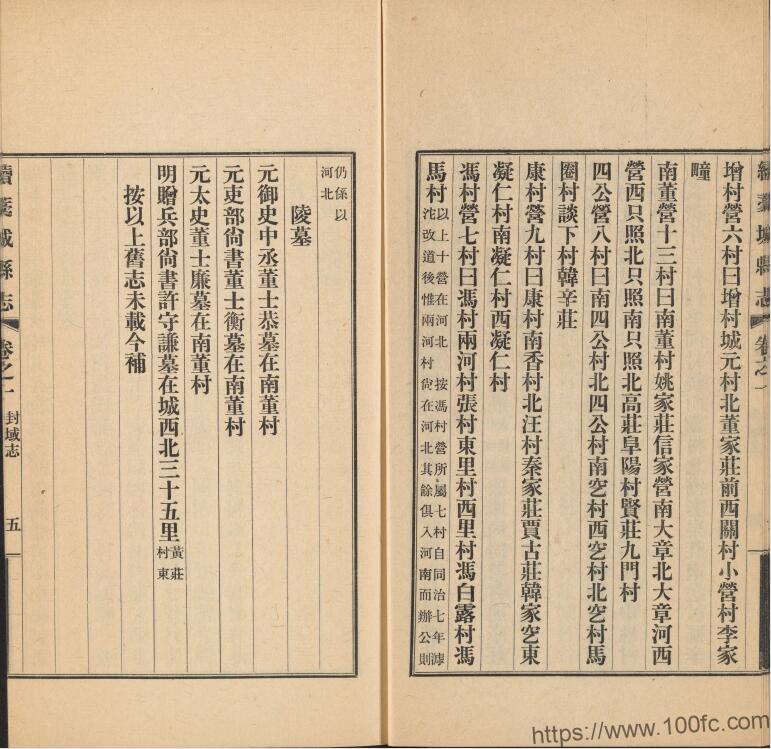 增村營六村曰增村城元村北董家莊前西關村小營村李家
疃
南董營十三村曰南董村姚家莊信家營南大章北大章河西
營西只照北只照南只照北高莊阜陽村賢莊九門村
四公營八村曰南四公村北四公村南穵村西穵村北穵村馬
圈村談下村韓辛莊
康村營九村曰康村南香村北汪村秦家莊賈古莊韓家穵東
凝仁村南凝仁村西凝仁村
馮村營七村曰馮村兩河村張村東里村西里村馮白露村馮
馬村
以上十營在河北 按馮村營所屬七村自同治七年滹
沱改道後惟兩河村尙在河北其餘俱入河南而辦公則
續藁城縣志
卷之一
仍係以
河北
陵墓
元御史中丞董士恭墓在南董村
元吏部尙書董士衡墓在南董村
元太史董士廉墓在南董村
明贈兵部尙書許守謙墓在城西北三十五里
黃莊
村東
按以上舊志未載今補
續藁城縣志
卷之一
封域志
五
https://www.100fc.com